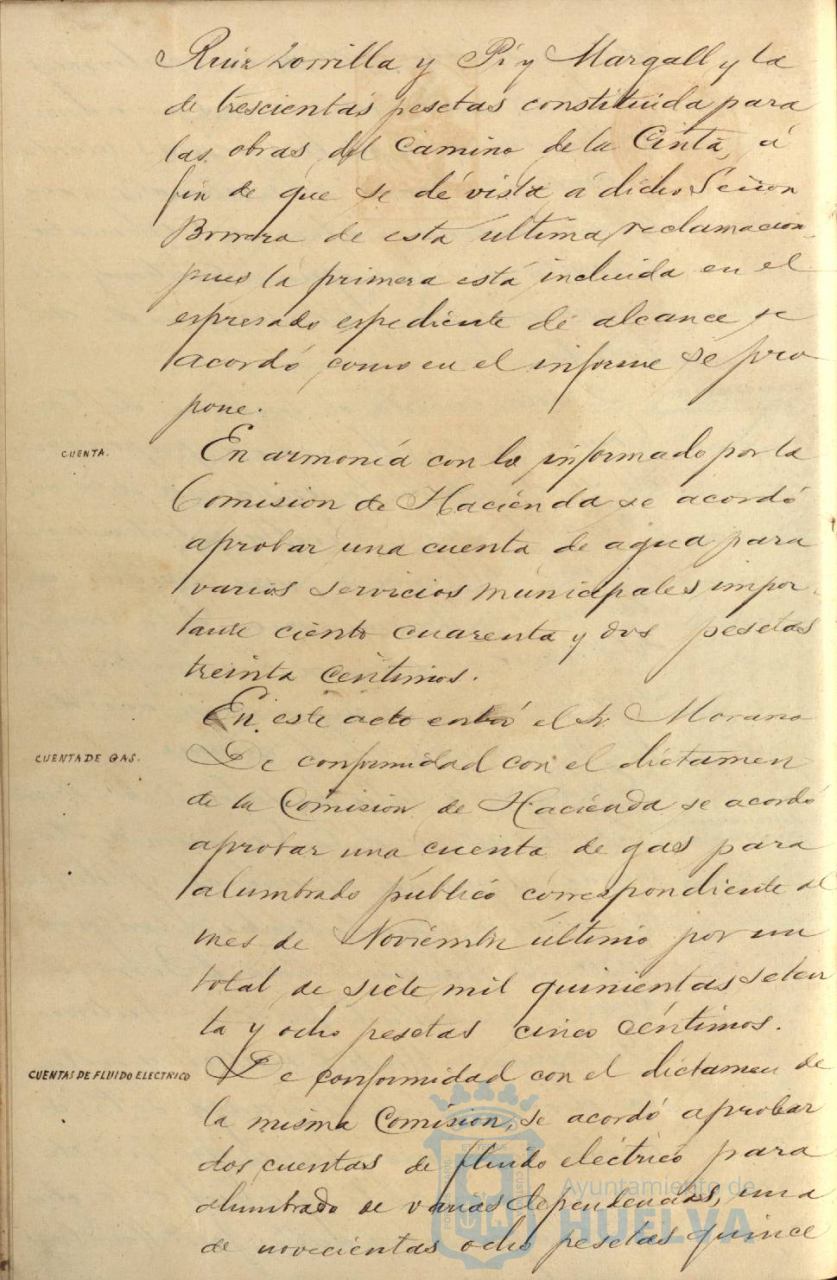 Ruiz Zorrilla y Pí y Margall y la
de trescientas pesetas constituida para
las obras del Camino de la Cinta, á
fin de que se dé vista á dicho Señor
Borrera de esta última reclamacion,
pues la primera está incluida en el
espresado espediente de alcance se
acordó como en el informe se pro
pone.
CUENTA.
En armonía con lo informado por la
Comision de Hacienda se acordó
aprobar una cuenta de agua para
varios servicios municipales impor
tante ciento cuarenta y dos pesetas
treinta céntimos.
En este acto entró el Sr. Morano
CUENTA DE GAS.
De conformidad con el dictamen
de la Comision de Hacienda se acordó
aprobar una cuenta de gas para
alumbrado público correspondiente al
mes de Noviembre último por un
total de siete mil quinientas seten
ta y ocho pesetas cinco céntimos.
CUENTAS DE FLUIDO ELECTRICO
De conformidad con el dictamen de
la misma Comision, se acordó aprobar
dos cuentas de fluido eléctrico para
alumbrado de varias dependencias, una
de novecientas ocho pesetas quince
Ayuntamiento de
HUELVA